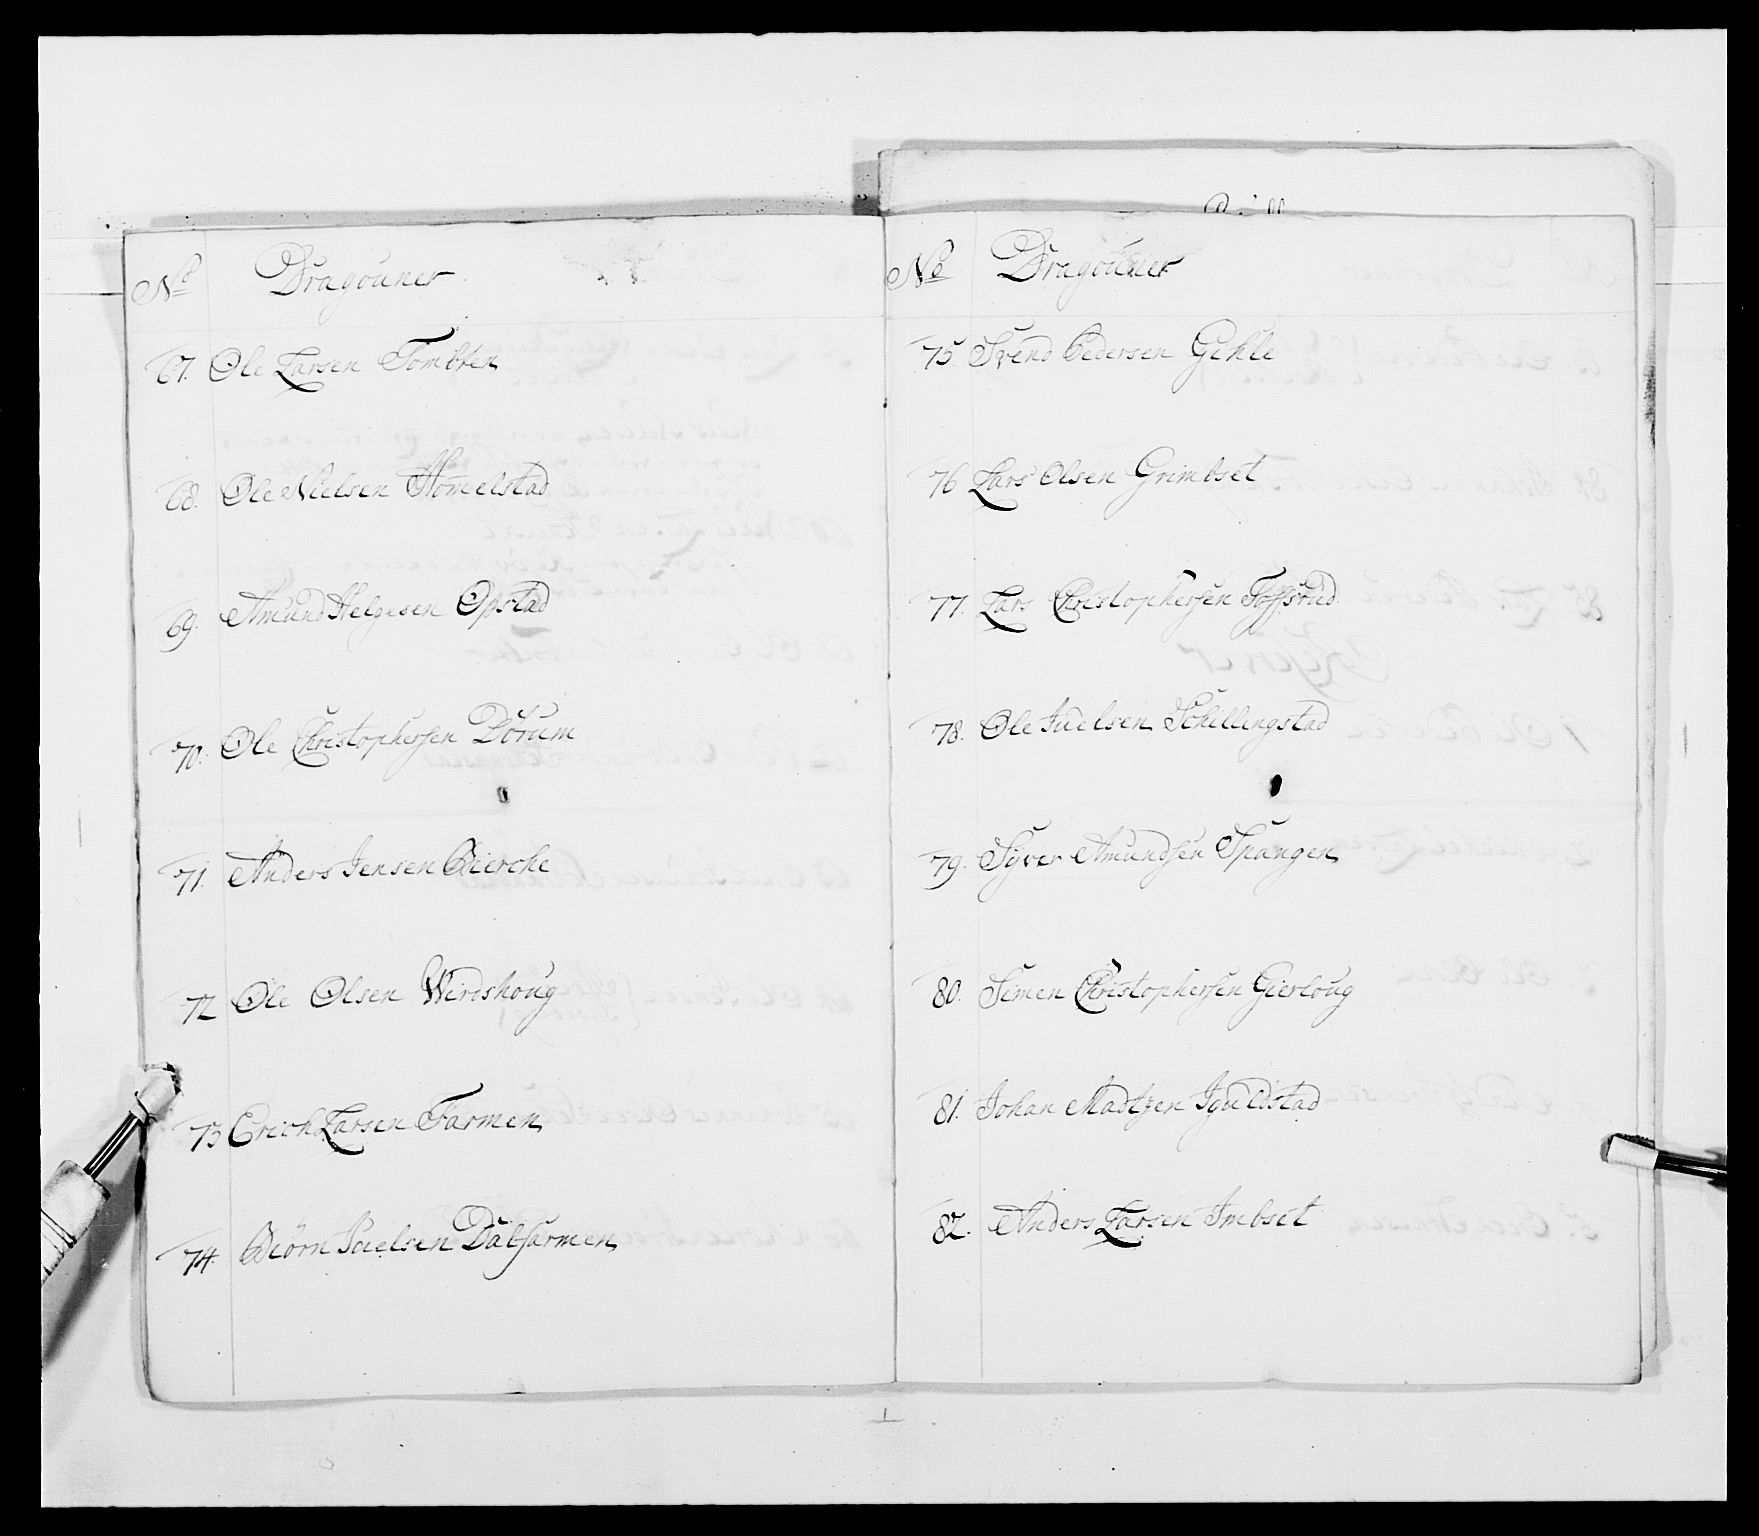 No Dragouner
67. Ole Larsen Tombten
68. Ole Nielsen Homelstad
69. Amund Helgesen Opstad
70. Ole Christophersen Dørum
71. Anders Jensen Bierche
72 Ole Olsen Wirdshoug
73 Erich Larsen Farmen
74. Biörn Joelsen Dalfarmen
No Dragouner
75. Svend Pedersen Gehle
76 Lars Olsen Grimbset
77. Lars Christophersen Toffsrud
78. Ole Juelsen Schillingstad
79. Syver Amundsen Spangen
80. Simen Christophersen Gierloug
81. Johan Madtzen Iguldstad
82. Anders Larsen Imbset